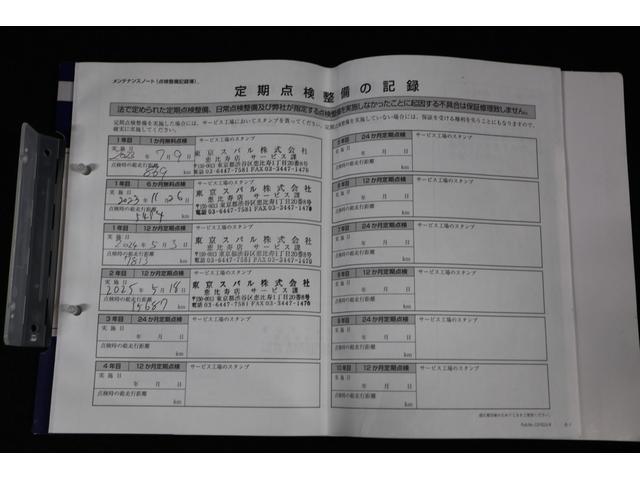 メンテナンスノート(点検整備記録簿)
定期点検整備の記録
法で定められた定期点検整備、日常点検整備及び弊社が指定する点検整備を実施しなかったことに起因する不具合は保証修理致しません。
定期点検整備を実施した場合には、サービス工場においてスタンプを貰ってください。定期点検整備を実施していない場合には、保証を受ける権利を失うこともになりますので、
確実に実施してください。
1年目 1か月無料点検 サービス工場のスタンプ
実施日
2023年7月9日
点検時の総走行距離
869 km
東京スバル株式会社
恵比寿店 サービス課
〒150-0013 東京都渋谷区恵比寿1丁目20番8号
電話03-6447-7581 FAX03-3447-1476
1年目 6か月無料点検 サービス工場のスタンプ
実施日
2023年11月26日
点検時の総走行距離
km
東京スバル株式会社
恵比寿店 サービス課
〒150-0013 東京都渋谷区恵比寿1丁目20番8号
電話03-6447-7581 FAX03-3447-1476
1年目 12か月定期点検 サービス工場のスタンプ
実施日
2024年5月3日
点検時の総走行距離
7813 km
東京スバル株式会社
恵比寿店 サービス課
〒150-0013 東京都渋谷区恵比寿1丁目20番8号
電話03-6447-7581 FAX03-3447-1476
2年目 12か月定期点検 サービス工場のスタンプ
実施日
2025年5月18日
点検時の総走行距離
15687 km
東京スバル株式会社
恵比寿店 サービス課
〒150-0013 東京都渋谷区恵比寿1丁目20番8号
電話03-6447-7581 FAX03-3447-1476
3年目 24か月定期点検 サービス工場のスタンプ
実施日
年 月 日
点検時の総走行距離
km
4年目 12か月定期点検 サービス工場のスタンプ
実施日
年 月 日
点検時の総走行距離
km
24か月定期点検 サービス工場のスタンプ
実施日
年 月 日
点検時の総走行距離
km
12か月定期点検 サービス工場のスタンプ
実施日
年 月 日
点検時の総走行距離
km
24か月定期点検 サービス工場のスタンプ
実施日
年 月 日
点検時の総走行距離
km
12か月定期点検 サービス工場のスタンプ
実施日
年 月 日
点検時の総走行距離
km
24か月定期点検 サービス工場のスタンプ
実施日
年 月 日
点検時の総走行距離
km
10年目 12か月定期点検 サービス工場のスタンプ
実施日
年 月 日
点検時の総走行距離
km